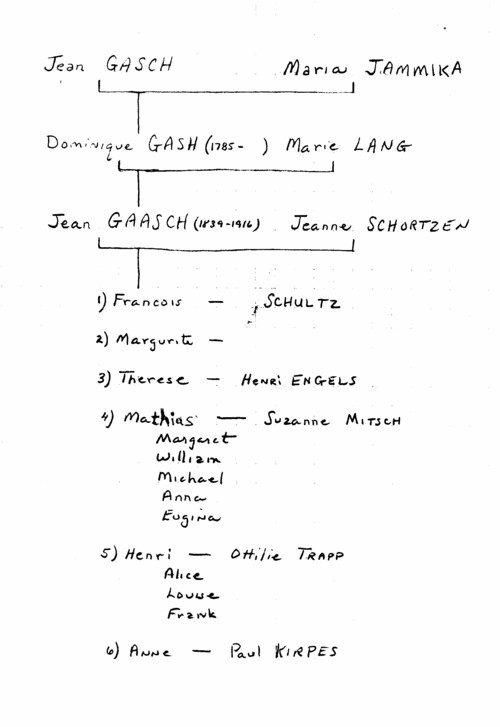 Jean GASCH Maria JAMMIKA
Dominique GASH (1785- ) Marie LANG
Jean GAASCH (1839-1916) Jeanne SCHORTZEN
1) Francois — SCHULTZ
2) Margurite —
3) Therese — HENRI ENGELS
4) Mathias — Suzanne MITSCH
Margaret
William
Michael
Anna
Eugina
5) Henri — Ottilie TRAPP
Alice
Louise
Frank
6) ANNE — Paul KIRPES